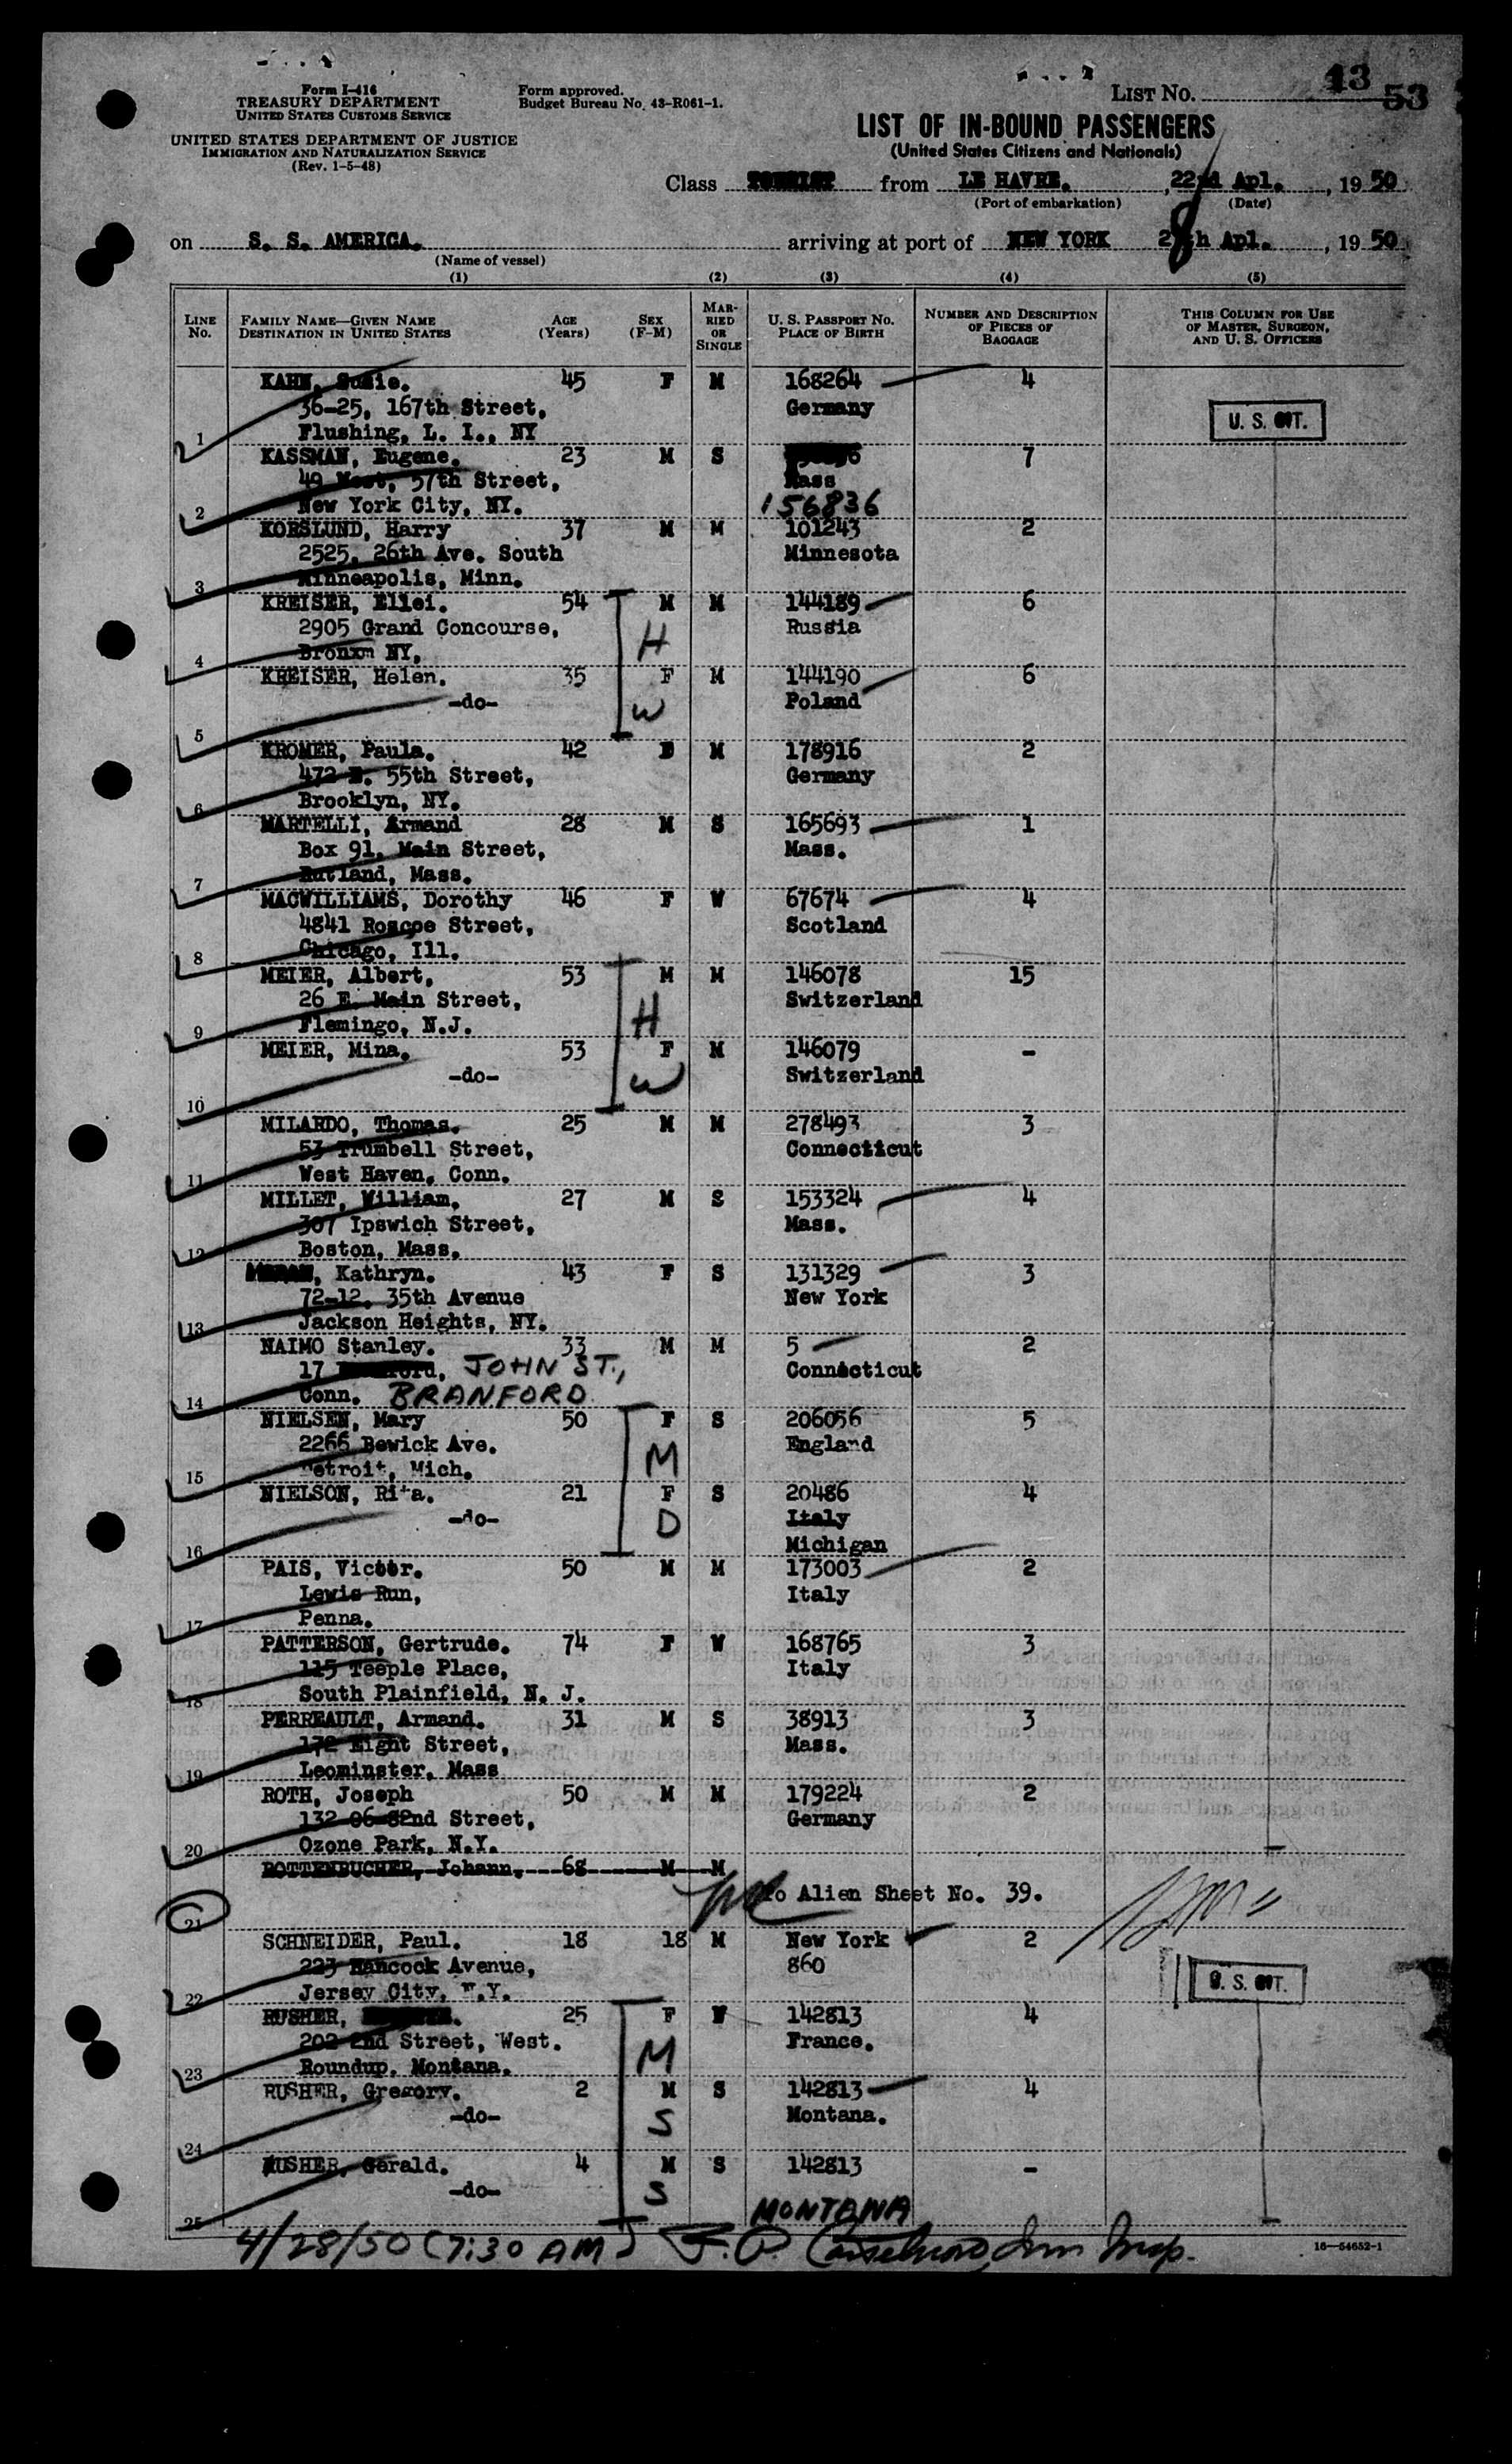 Form I-416
TREASURY DEPARTMENT
UNITED STATES CUSTOMS SERVICE
UNITED STATES DEPARTMENT OF JUSTICE
IMMIGRATION AND NATURALIZATION SERVICE
(Rev. 1-5-48)
Form approved.
Budget Bureau No. 43-R061-1.
LIST NO. 43 53
LIST OF IN-BOUND PASSENGERS
(United States Citizens and Nationals)
Class TOURIST from LE HAVRE. , 22nd Apl. , 19 50
(Port of embarkation) (Date)
on S. S. AMERICA. arriving at port of NEW YORK 28th Apl. , 19 50
(Name of vessel)
(1) (2) (3) (4) (5)
LINE No. FAMILY NAME—GIVEN NAME DESTINATION IN UNITED STATES AGE (Years) SEX (F-M) MARRIED OR SINGLE U. S. PASSPORT NO. PLACE OF BIRTH NUMBER AND DESCRIPTION OF PIECES OF BAGGAGE THIS COLUMN FOR USE OF MASTER, SURGEON, AND U. S. OFFICERS
KAHN, Susie. 45 F M 168264 4
36-25, 167th Street, Germany U. S. CIT.
1 Flushing, L. I., NY
KASSMAN, Eugene. 23 M S 7
49 West, 57th Street, Mass
2 New York City, NY. 156836
KORSLUND, Harry 37 M M 101243 2
2525, 26th Ave. South Minnesota
3 Minneapolis, Minn.
KREISER, Ellei. 54 M M 144189 6
2905 Grand Concourse, H Russia
4 Bronxm NY,
KREISER, Helen. 35 F M 144190 6
-do- W Poland
5
KROMER, Paula. 42 M 178916 2
472 E. 55th Street, Germany
6 Brooklyn, NY.
MARTELLI, Armand 28 M S 165693 1
Box 91, Main Street, Mass.
7 Rutland, Mass.
MACWILLIAMS, Dorothy 46 F W 67674 4
4841 Roscoe Street, Scotland
8 Chicago, Ill.
MEIER, Albert, 53 M M 146078 15
26 E. Main Street, H Switzerland
9 Flemingo, N.J.
MEIER, Mina. 53 F M 146079 -
-do- W Switzerland
10
MILARDO, Thomas. 25 M M 278493 3
53 Trumbell Street, Connecticut
11 West Haven, Conn.
MILLET, William. 27 M S 153324 4
307 Ipswich Street, Mass.
12 Boston, Mass.
, Kathryn. 43 F S 131329 3
72-12, 35th Avenue New York
13 Jackson Heights, NY.
NAIMO Stanley. 33 M M 5 2
17 JOHN ST., Connecticut
14 Conn. BRANFORD
NIELSEN, Mary 50 F S 206056 5
2266 Bewick Ave. M England
15 Detroit, Mich.
NIELSON, Rita. 21 F S 20486 4
-do- D Italy
16 Michigan
PAIS, Victor. 50 M M 173003 2
Lewis Run, Italy
17 Penna.
PATTERSON, Gertrude. 74 F W 168765 3
115 Teeple Place, Italy
18 South Plainfield, N. J.
PERREAULT, Armand. 31 M S 38913 3
172 Eight Street, Mass.
19 Leominster, Mass
ROTH, Joseph 50 M M 179224 2
132-06-82nd Street, Germany
20 Ozone Park, N.Y.
ROTTENBUCHER, Johann. 68 M M
To Alien Sheet No. 39.
21
SCHNEIDER, Paul. 18 18 M New York 2
223 Hancock Avenue, 860 U. S. CIT.
22 Jersey City, N.Y.
RUSHER, 25 F 142813 4
202 2nd Street, West. M France.
23 Roundup, Montana.
RUSHER, Gregory. 2 M S 142813 4
-do- S Montana.
24
RUSHER, Gerald. 4 M S 142813 -
-do- S
25 MONTANA
4/28/50 (7:30 AM) J. P. Imm Insp.
16-54652-1